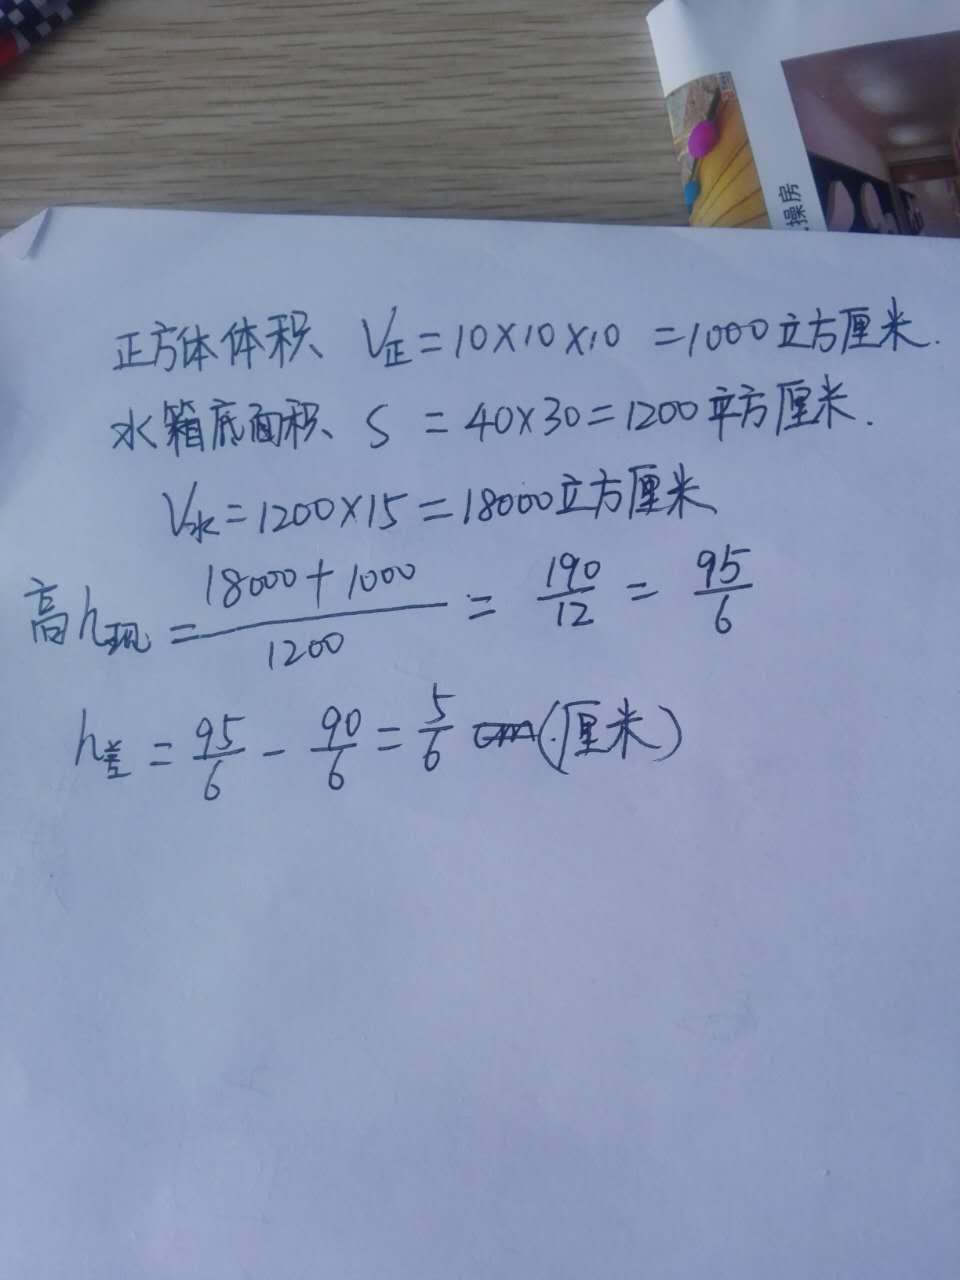 操房
正方体体积 V正=10×10×10 =1000立方厘米.
水箱底面积 S =40×30=1200平方厘米.
V水=1200×15=18000立方厘米
高h现=18000+1000/1200=190/12=95/6
h差=95/6-90/6=5/6 (厘米)